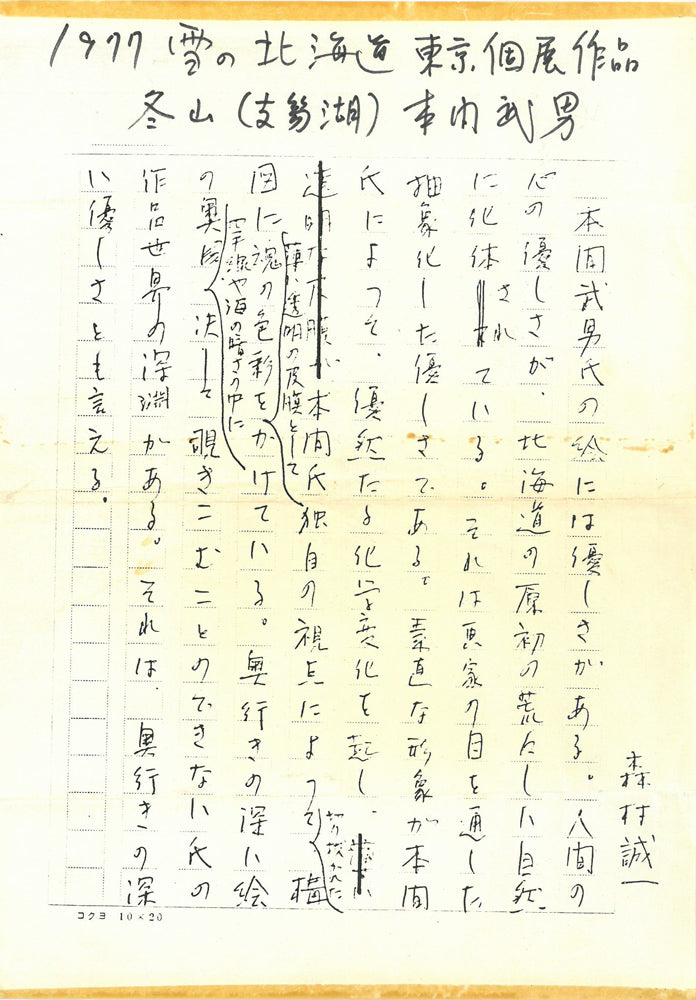 1977 雪の北海道 東京個展作品
冬山(支笏湖) 本間武男
森村誠一
本間武男氏の絵には優しさがある。人間の
心の優しさが、北海道の原初の荒々しい自然
に化体されている。それは画家の目を通した
抽象化した優しさである。素直な形象が本間
氏によって、優然たる化学変化を起し、
切抜かれた
透明な皮膜が本間氏独自の視点によって、構
薄い透明の皮膜として
図に魂の色彩をかけている。奥行きの深い絵
線や海の暗さの中に
の奥底、決して覗きこむことのできない氏の
作品世界の深淵がある。それは、奥行きの深
い優しさとも言える。
コクヨ 10×20